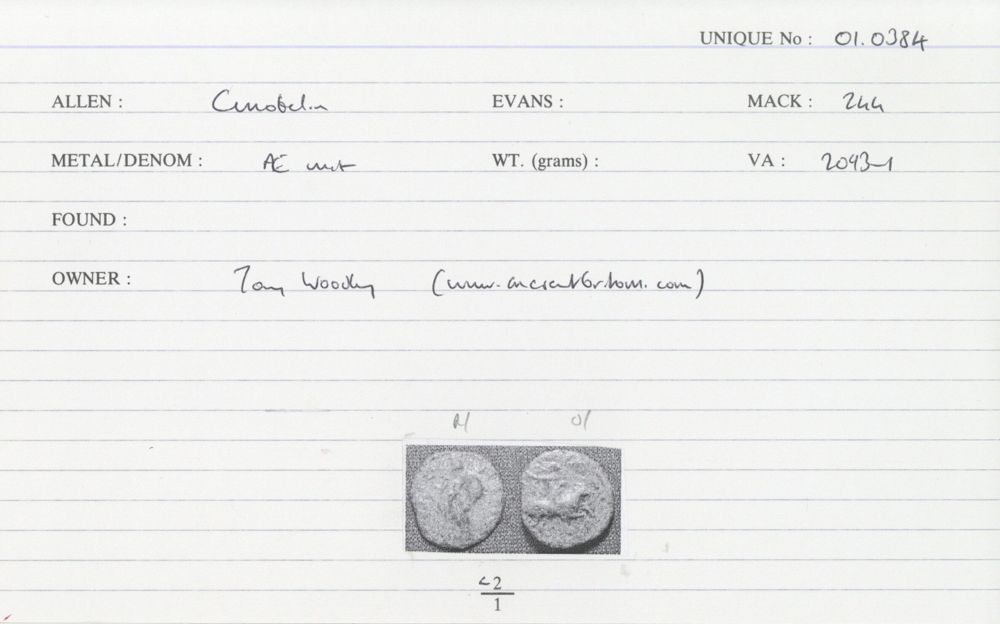 UNIQUE No : 01.0384
ALLEN : Cunobelin EVANS : MACK : 244
METAL/DENOM : Æ unit WT. (grams) : VA : 2093-1
FOUND :
OWNER : Tony (www.ancientbritain.com)
R/ O/
<2
1